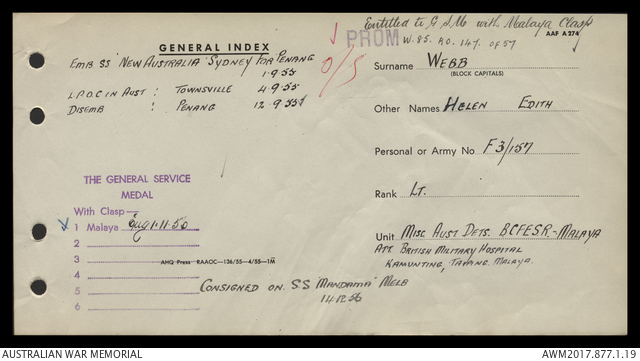 Entitled to G.S.M. with Malaya Clasp
AAF A 274
PROM
W.85. RO. 147. of 57
GENERAL INDEX
EMB SS "NEW AUSTRALIA" SYDNEY FOR PENANG
1.9.55
L.P.O.C IN AUST : TOWNSVILLE 4.9.55
DISEMB : PENANG 12.9.55
O/S
Surname WEBB
(BLOCK CAPITALS)
Other Names HELEN EDITH
Personal or Army No F3/157
Rank LT.
Unit MISC AUST DETS. BCFESR.-MALAYA
ATT BRITISH MILITARY HOSPITAL
KAMUNTING, MALAYA.
THE GENERAL SERVICE
MEDAL
With Clasp—
1 Malaya 1.11.56
2
3
4
5
6
AHQ Press RAAOC—136/55—4/55—1M
CONSIGNED ON. SS "MANDAMA" MELB
14.12.56
AUSTRALIAN WAR MEMORIAL
AWM2017.877.1.19